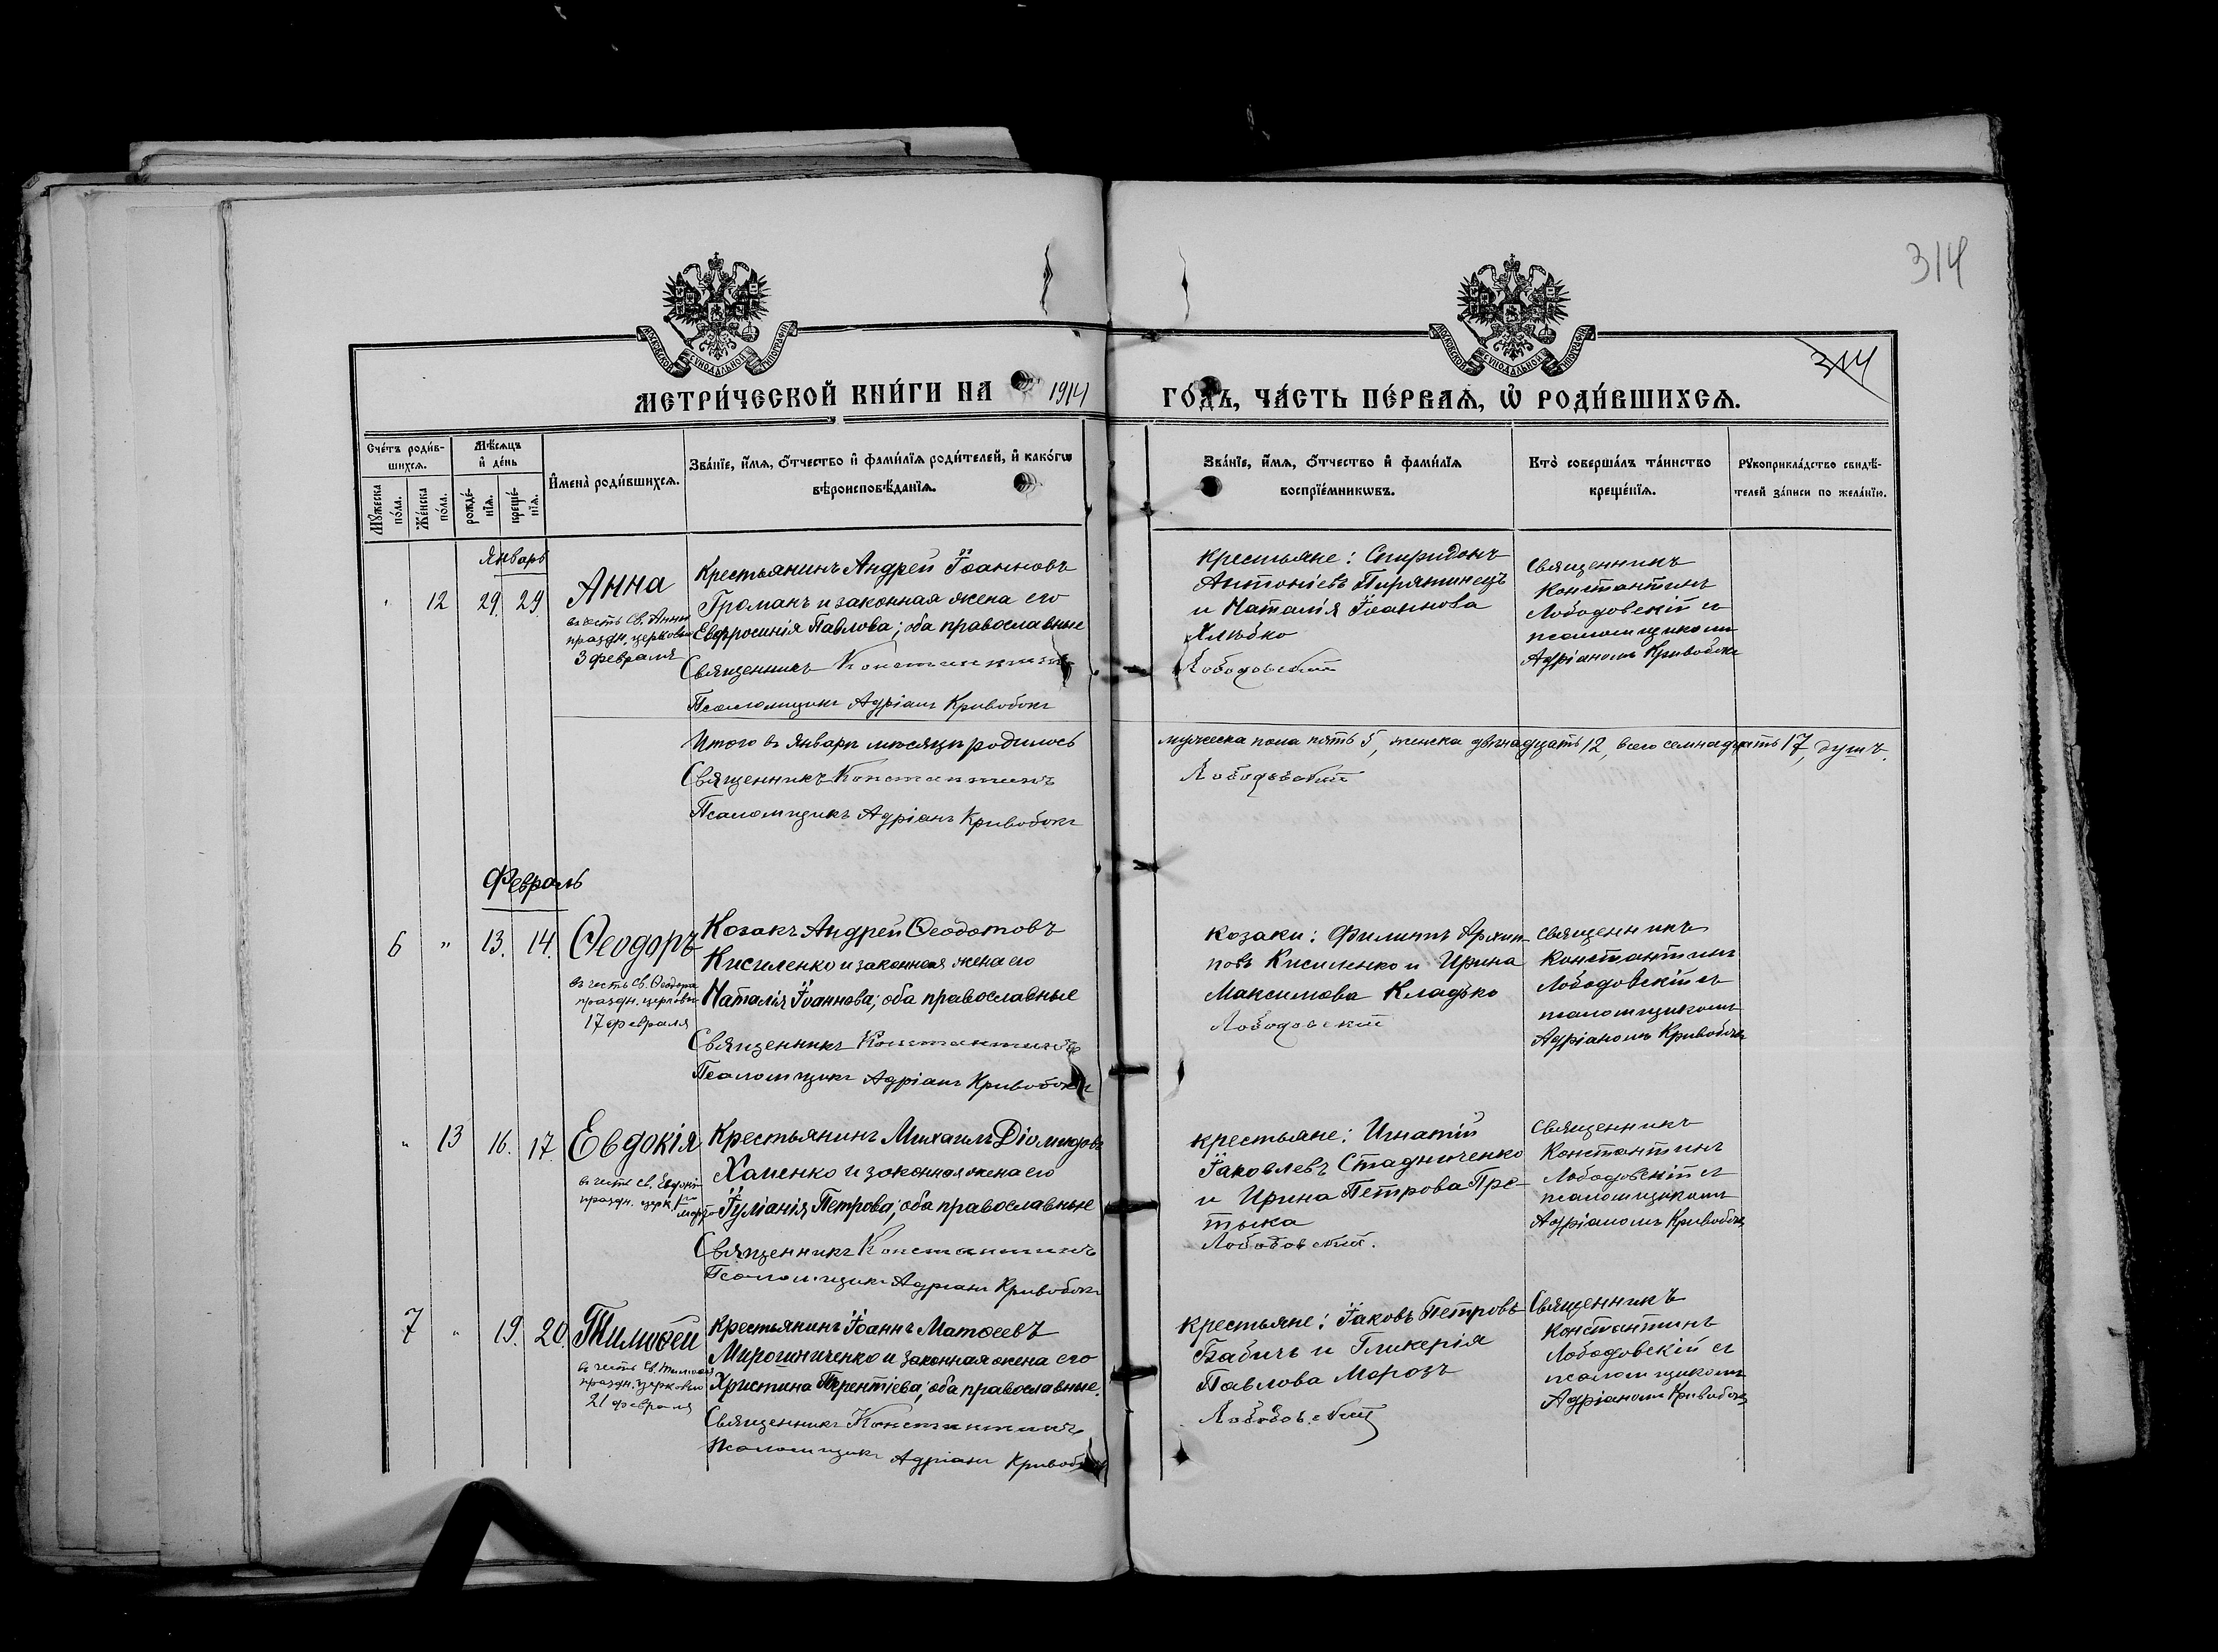 314
МОСКОВСКОЙ СѴНОДАЛЬНОЙ ТИПОГРАФІИ
МОСКОВСКОЙ СѴНОДАЛЬНОЙ ТИПОГРАФІИ
314
МЕТРИ́ЧЕСКОЙ КНИ́ГИ НА 1914 ГО́ДЪ, ЧА́СТЬ ПЕ́РВАѦ, Ѡ҆ РОДИ́ВШИХСѦ.
Сче́тъ роди́в-
шихсѧ.
Мѣ́сѧцъ
и҆ де́нь
Мꙋ́жеска по́ла.
Же́нска по́ла.
рожде́-
нїѧ.
креще́-
нїѧ.
И҆мена̀ роди́вшихсѧ.
Зва́нїе, и҆́мѧ, ѻ҆́тчество и҆ фами́лїѧ роди́телей, и҆ како́гѡ
вѣроисповѣ́данїѧ.
Зва́нїе, и҆́мѧ, ѻ҆́тчество и҆ фами́лїѧ
воспрїе́мникѡвъ.
Кто̀ соверша́лъ та́инство
креще́нїѧ.
Рꙋкоприкла́дство свидѣ́-
телей за́писи по жела́нїю.
Январь
12 29. 29.
Анна
въ честь Св. Анны
праздн. церковью
3 февраля
Крестьянинъ Андрей Іоанновъ
Громанъ и законная жена его
Евфросинія Павлова; оба православные
Священникъ Константинъ
Псаломщикъ Адріанъ Кривобокъ
крестьяне: Спиридонъ
Антоніевъ Пирятинецъ
и Наталія Іоаннова
Хлѣбко
Лободовскій
Священникъ
Константинъ
Лободовскій съ
псаломщикомъ
Адріаномъ Кривобокъ
Итого въ Январѣ мѣсяцѣ родилось мужеска пола пять 5, женска двѣнадцать 12, всего семнадцать 17, душъ.
Священникъ Константинъ Лободовскій
Псаломщикъ Адріанъ Кривобокъ
Февраль
6 " 13. 14.
Ѳеодоръ
въ честь Св. Ѳеодора
праздн. церковью
17 февраля
Козакъ Андрей Ѳеодотовъ
Кисиленко и законная жена его
Наталія Іоаннова; оба православные
Священникъ Константинъ
Псаломщикъ Адріанъ Кривобокъ
козаки: Филиппъ Архип-
повъ Кисиленко и Ирина
Максимова Кладько
Лободовскій
Священникъ
Константинъ
Лободовскій съ
псаломщикомъ
Адріаномъ Кривобокъ
" 13 16. 17.
Евдокія
въ честь св. Евдокіи
праздн. церк. 1го
марта
Крестьянинъ Михаилъ Діомидовъ
Хаменко и законная жена его
Іуліанія Петрова; оба православные
Священникъ Константинъ
Псаломщикъ Адріанъ Кривобокъ
крестьяне: Игнатій
Іаковлевъ Стадниченко
и Ирина Петрова Пре-
тыка
Лободовскій.
Священникъ
Константинъ
Лободовскій съ
псаломщикомъ
Адріаномъ Кривобокъ
7 " 19. 20.
Тимоѳей
въ честь Св. Тимоѳея
праздн. церковью
21 февраля
Крестьянинъ Іоаннъ Матѳеевъ
Мирошниченко и законная жена его
Христина Терентіева; оба православные.
Священникъ Константинъ
Псаломщикъ Адріанъ Кривобокъ
крестьяне: Іаковъ Петровъ
Бабичъ и Гликерія
Павлова Морозъ
Лободовскій
Священникъ
Константинъ
Лободовскій съ
псаломщикомъ
Адріаномъ Кривобокъ